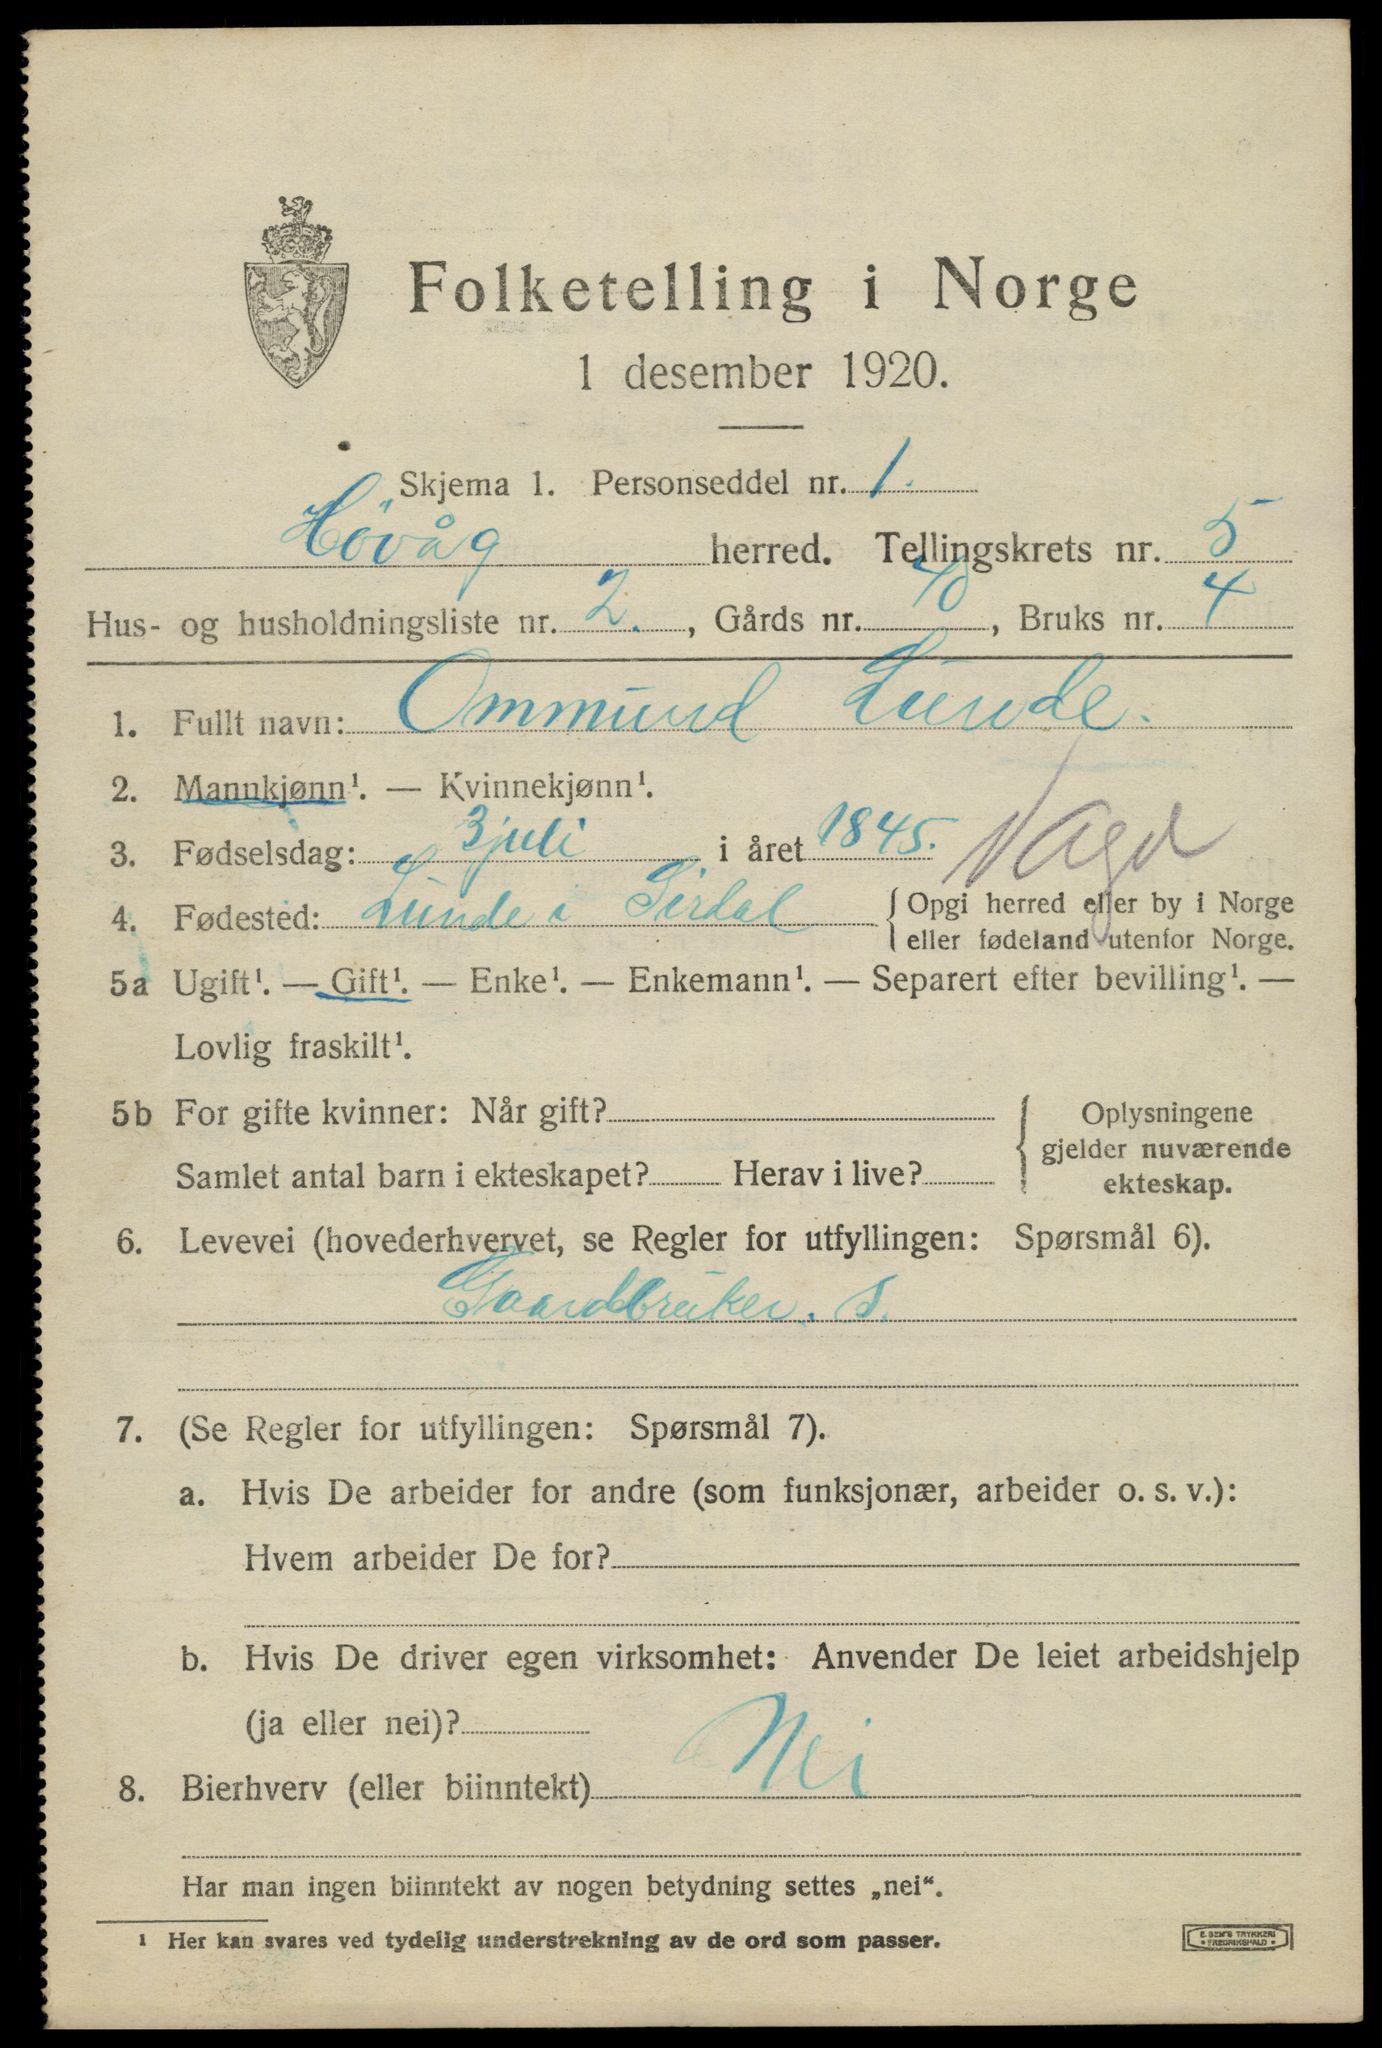 Folketelling i Norge
1 desember 1920.
Skjema 1. Personseddel nr. 1.
Høvåg herred. Tellingskrets nr. 5
Hus- og husholdningsliste nr. 2., Gårds nr. 40, Bruks nr. 4
1. Fullt navn: Ommund Lunde.
2. Mannkjønn¹. — Kvinnekjønn¹.
3. Fødselsdag: 3 juli i året 1845.
4. Fødested: Lunde i Sirdal {Opgi herred eller by i Norge
eller fødeland utenfor Norge.
5a Ugift¹. — Gift¹. — Enke¹. — Enkemann¹. — Separert efter bevilling¹. —
Lovlig fraskilt¹.
5b For gifte kvinner: Når gift? { Oplysningene
gjelder nuværende
Samlet antal barn i ekteskapet? Herav i live? ekteskap.
6. Levevei (hovederhvervet, se Regler for utfyllingen: Spørsmål 6).
Gaardbruker. S.
7. (Se Regler for utfyllingen: Spørsmål 7).
a. Hvis De arbeider for andre (som funksjonær, arbeider o. s. v.):
Hvem arbeider De for?
b. Hvis De driver egen virksomhet: Anvender De leiet arbeidshjelp
(ja eller nei)?
8. Bierhverv (eller biinntekt) Nei
Har man ingen biinntekt av nogen betydning settes „nei“.
¹ Her kan svares ved tydelig understrekning av de ord som passer.
E. SEM'S TRYKKERI
FREDRIKSHALD